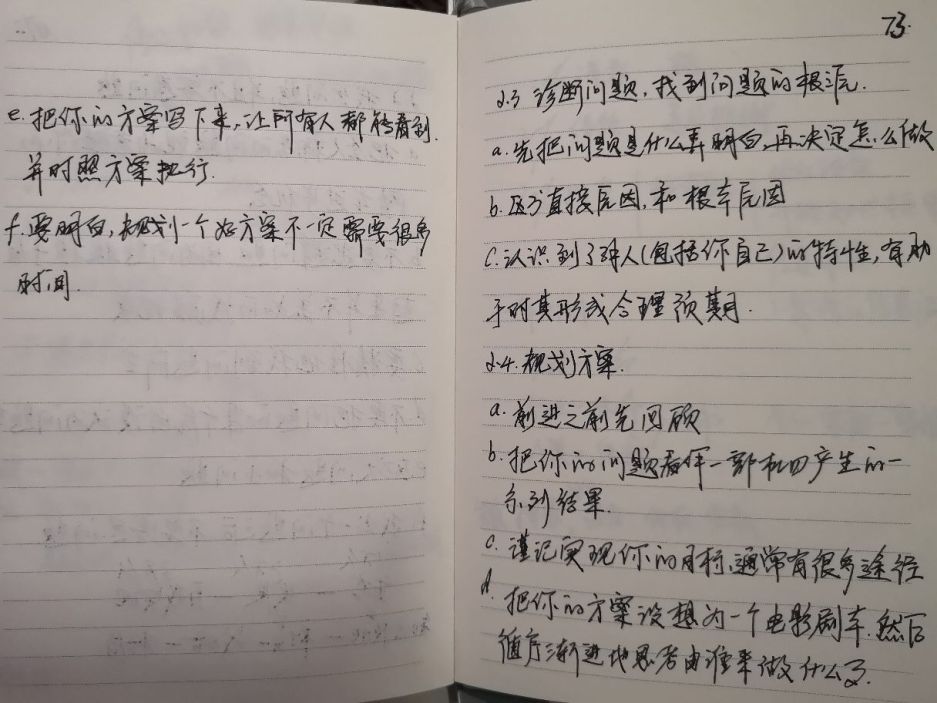 e.把你的方案写下来,让所有人都能看到.
并时照方案执行.
f.要明白,规划一个好方案不一定需要很多
时间.
73.
2.3 诊断问题,找到问题的根源.
a.先把问题是什么弄明白,再决定怎么做
b.区分直接原因,和根本原因
c.认识到了解人(包括你自己)的特性,有助
于对其形成合理预期.
2.4.规划方案.
a.前进之前先回顾
b.把你的问题看作一部机四产生的一
系列结果.
c.谨记实现你的目标,通常有很多途径
d.把你的方案设想为一个电影剧本.然后
循序渐进地思考由谁来做什么了.